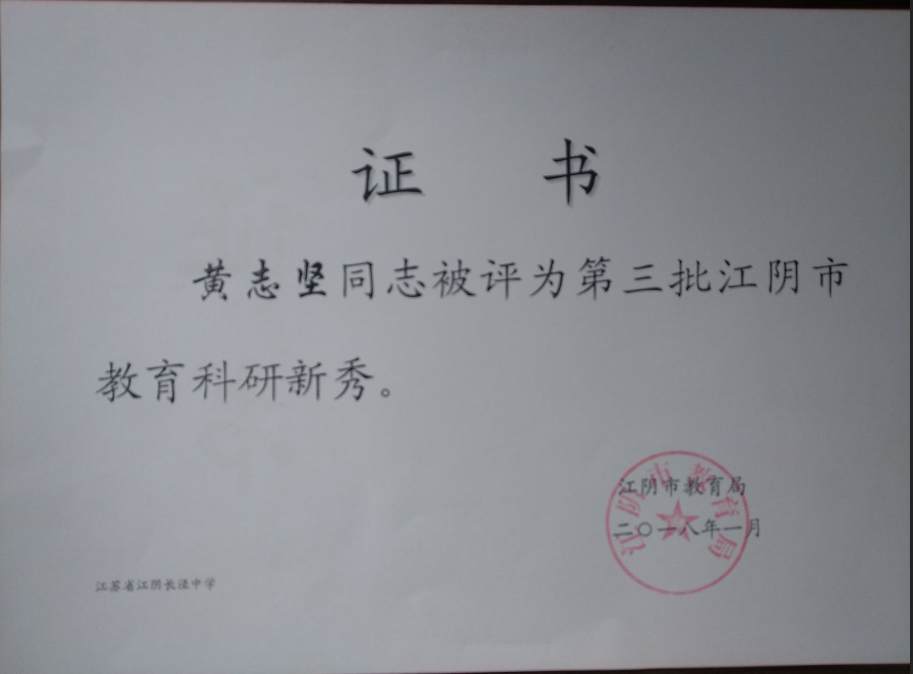 证 书
黄志坚同志被评为第三批江阴市
教育科研新秀。
江阴市教育局
二〇一八年一月
江阴市教育局
江苏省江阴长泾中学